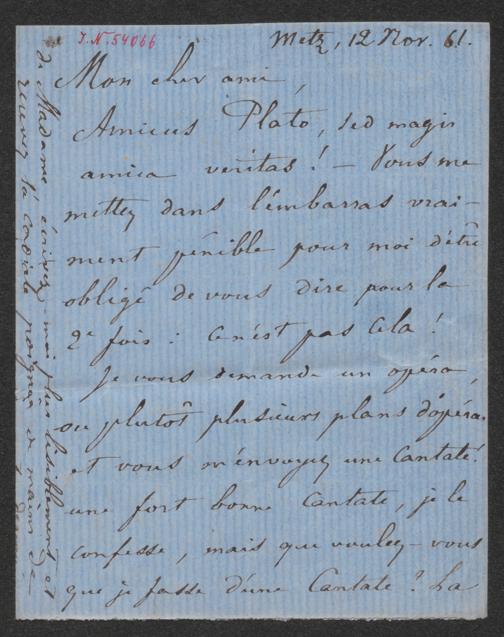 I.N. 54066
Metz, 12 Nov. 61.
Mon cher ami,
Amicus Plato, sed magis
amica veritas! – Vous me
mettez dans l'embarras vrai-
ment pénible pour moi d'être
obligé de vous dire pour la
2e fois : ce n'est pas cela !
Je vous demande un opéra,
ou plutôt plusieurs plans d'opéra.
et vous m'envoyez une Cantate!
une fort bonne Cantate, je le
confesse, mais que voulez-vous
que je fasse d'une Cantate ? La
de Madame écrivez-moi plus lisiblement et
recevez la cordiale poignée de mains de